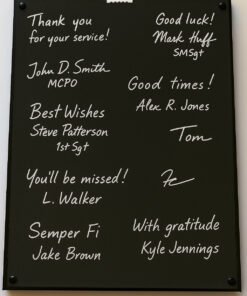 Thank you
for your service!
John D. Smith
MCPO
Best Wishes
Steve Patterson
1st Sgt
You'll be missed!
L. Walker
Semper Fi
Jake Brown
Good luck!
Mark Huff
SMSgt
Good times!
Alex R. Jones
Tom
With gratitude
Kyle Jennings